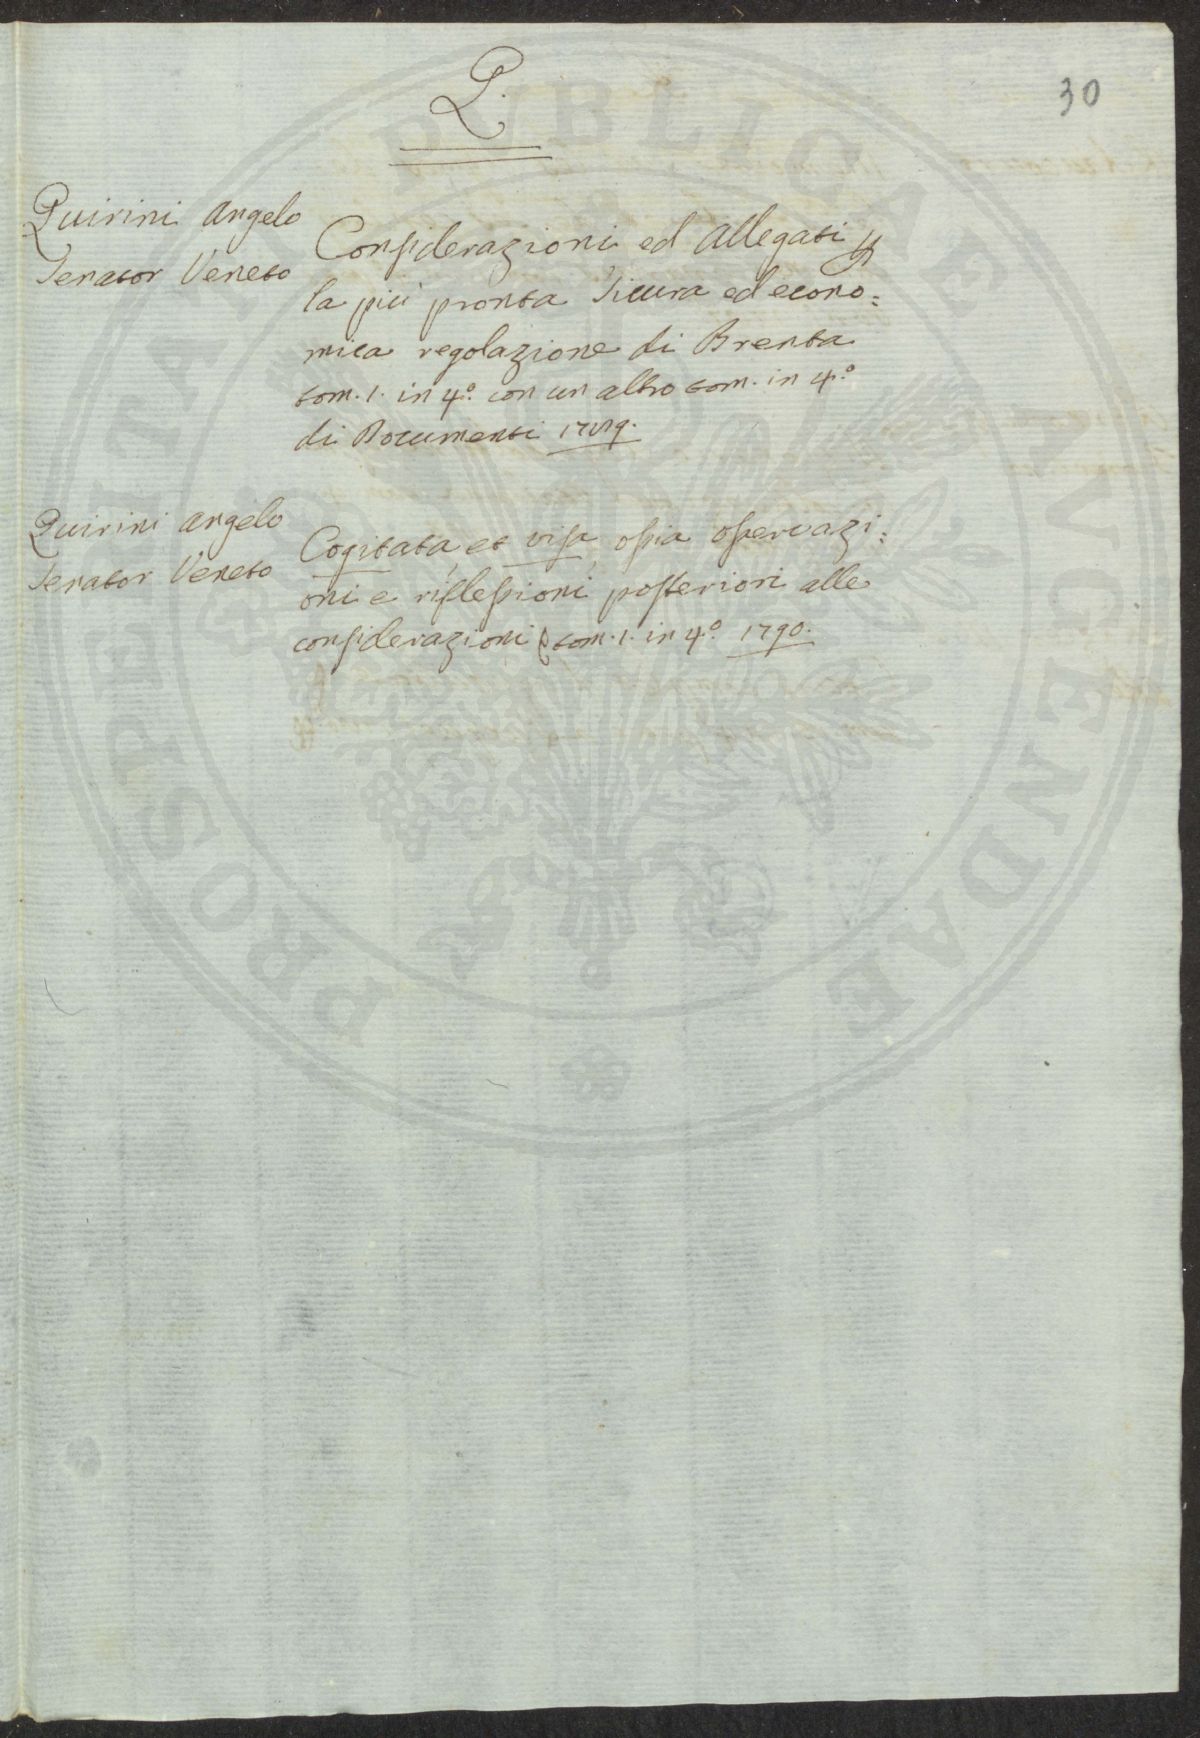 Q.
30
Quirini Angelo
Senator Veneto
Considerazioni ed Allegati
la più pronta sicura ed econo=
mica regolazione di Brenta
tom. 1. in 4.º con un altro tom. in 4.º
di Documenti
Quirini Angelo
Senator Veneto
Cogitata, et visa, ossia osservazi=
oni e riflessioni posteriori alle
considerazioni tom. 1. in 4.º 1790.
PROSPERITATI PUBLICAE AUGENDAE